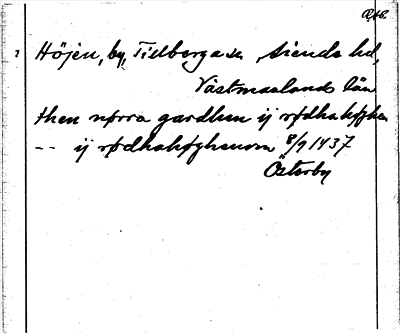 Höjen, by, Tillberga sn, Siende hd,
Västmanlands län
then nørra gardhen ij rødhahøghen
-- ij rødhahøghenom 8/9 1437
Österby